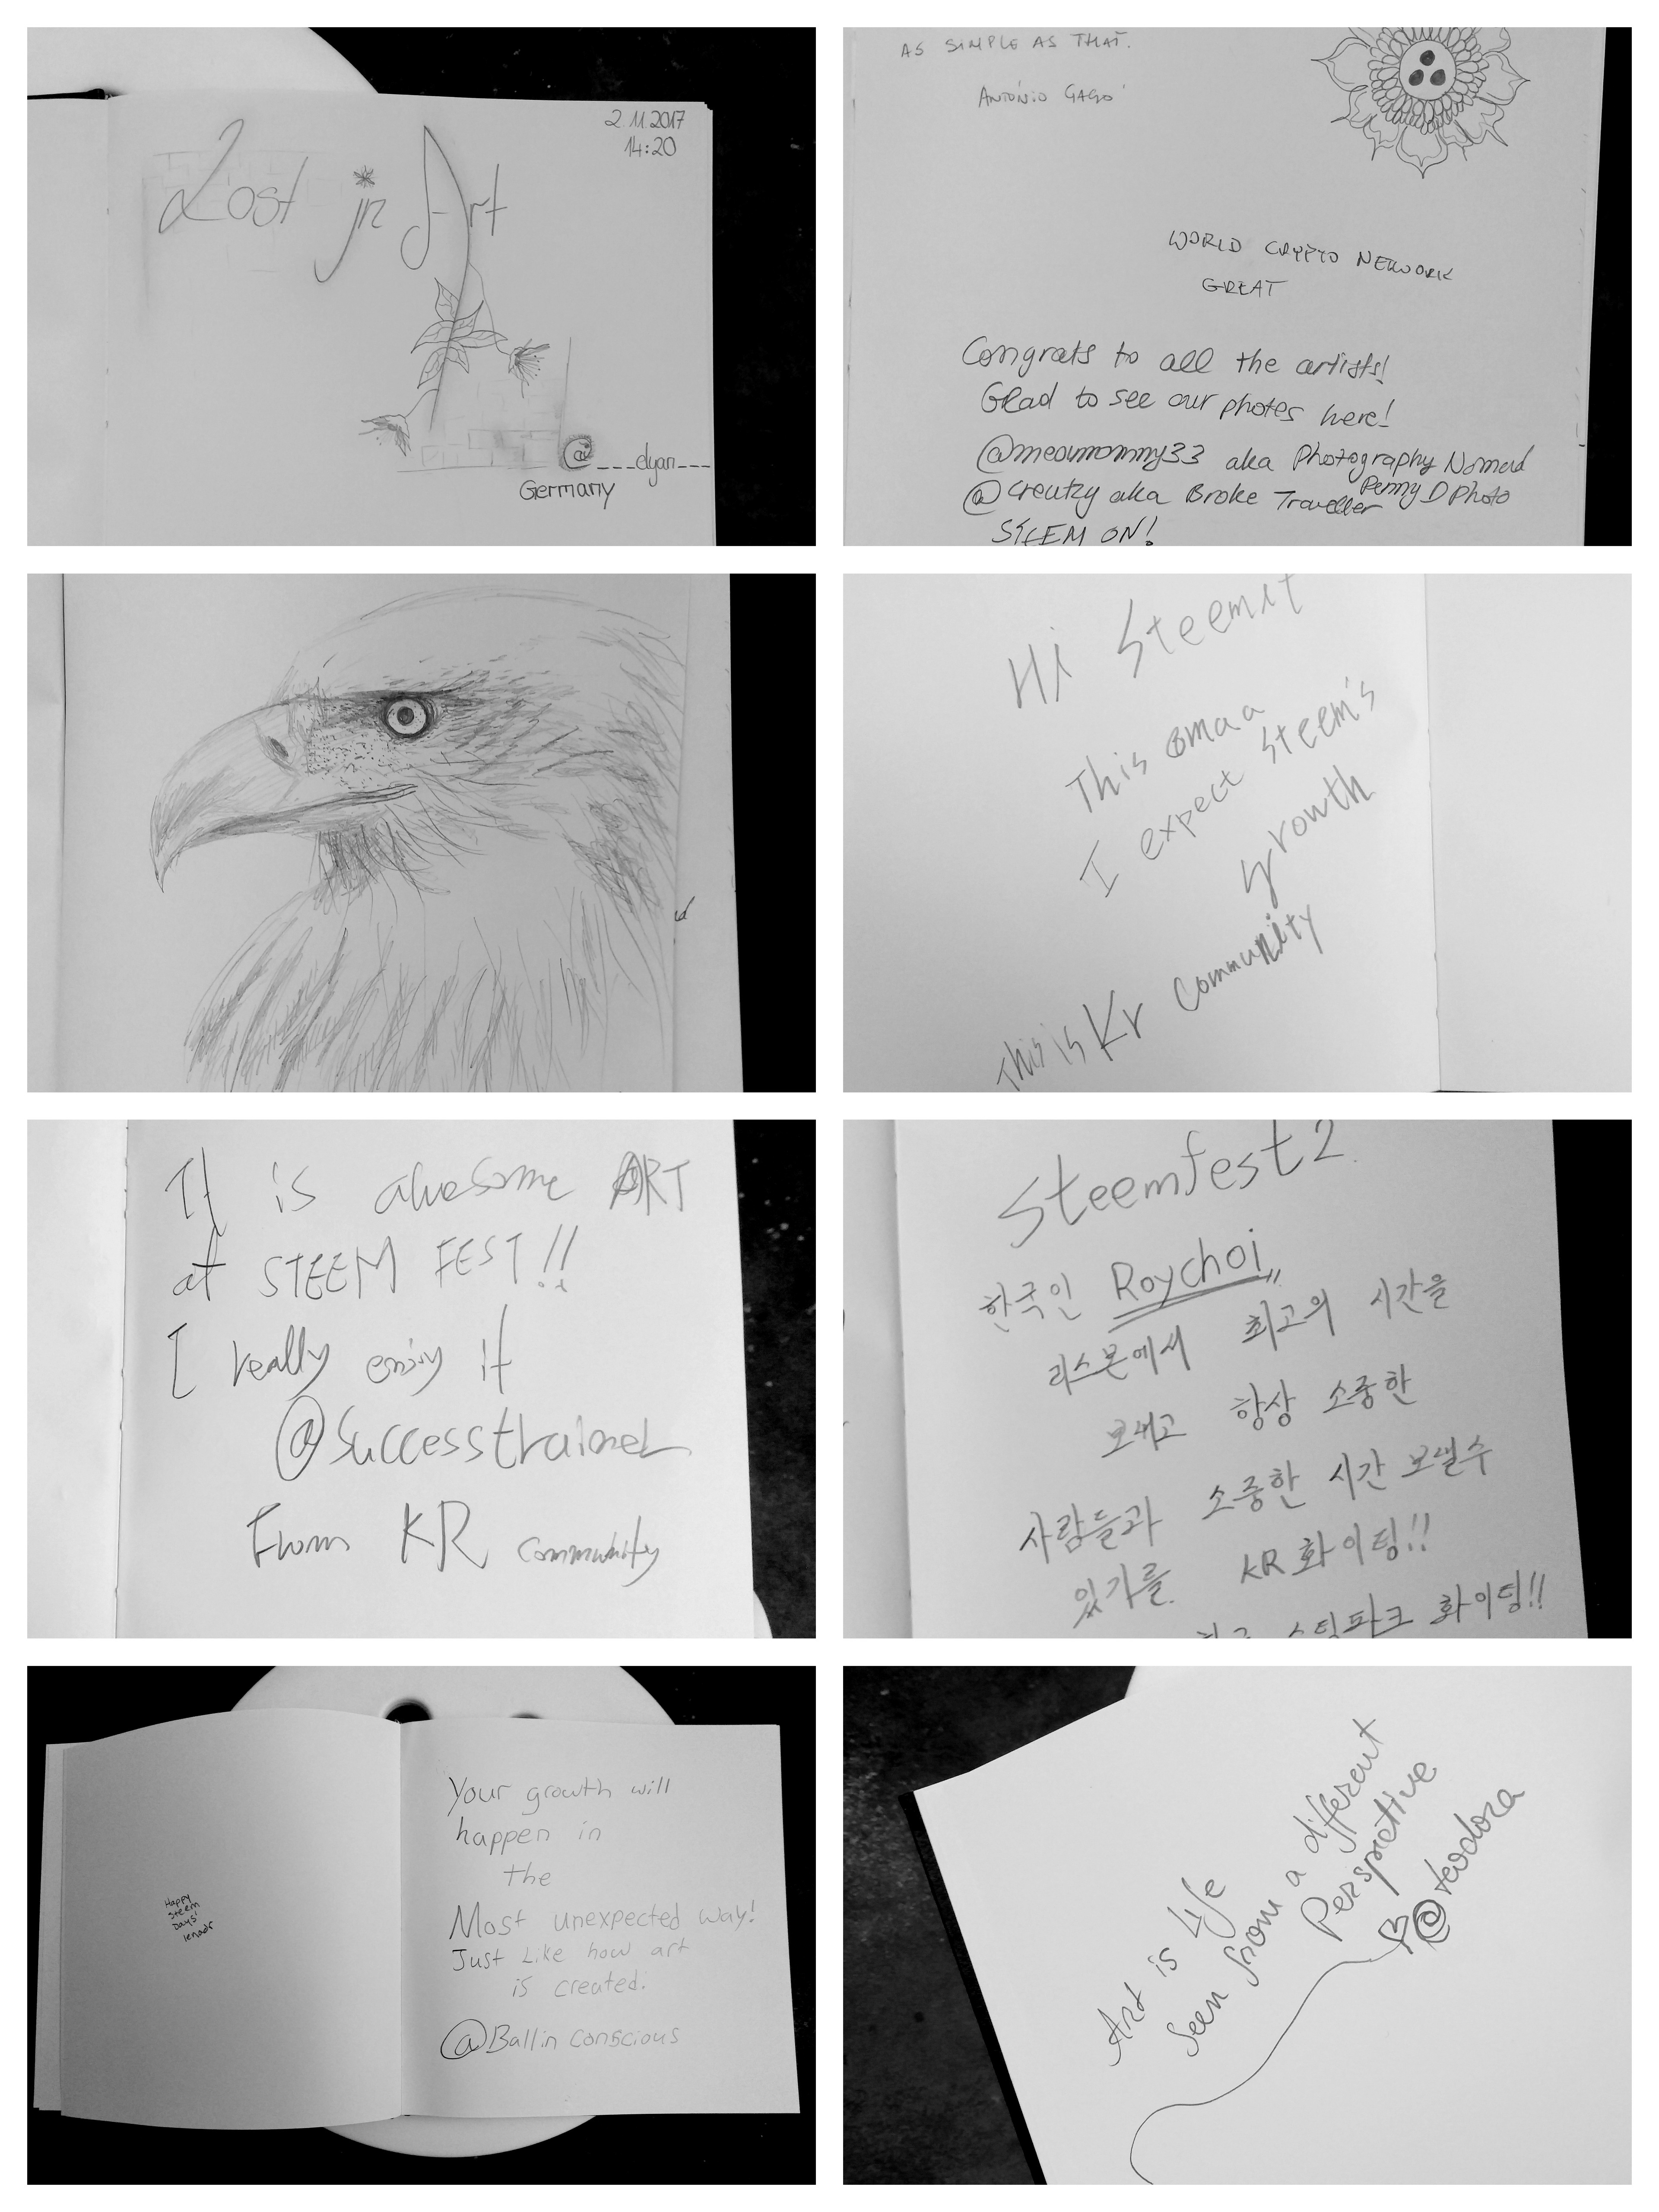 2.11.2017
14:20
Lost in Art
@___elyan___
Germany
AS SIMPLE AS THAT.
ANTÓNIO GAGO
WORLD CRYPTO NETWORK
GREAT
Congrats to all the artists!
Glad to see our photos here!
@meowmommy33 aka Photography Nomad
Penny D Photo
@creutzy aka Broke Traveller
STEEM ON!
Hi Steemit
This omaa
I expect Steem's
growth
This is Kr community
It is awesome ART
at STEEM FEST!!
I really enjoy it
@successtrainer
From KR community
Steemfest 2
한국인 Roychoi
리스본에서 최고의 시간을
보내고 항상 소중한
사람들과 소중한 시간 보낼수
있기를. KR 화이팅!!
스팀파크 화이팅!!
Happy
Steem
Days!
Your growth will
happen in
the
Most unexpected way!
Just Like how art
is created.
@Ballin conscious
Art is Life
Seen from a different
Perspective
@teodora